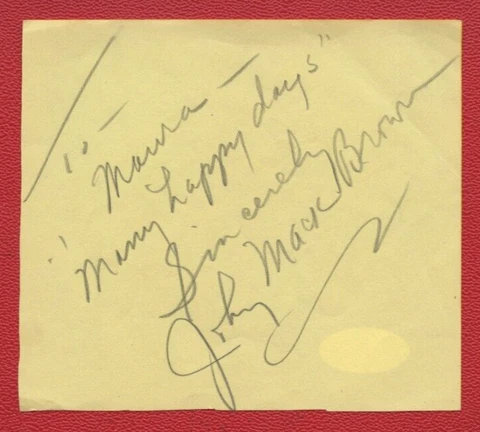 To —
Maura —
"Many happy days"
Sincerely
Johny Mack Brown